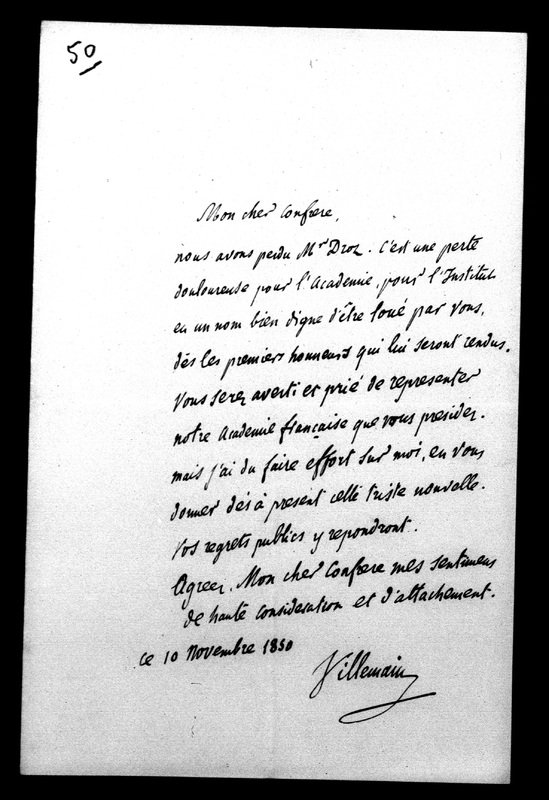 50
Mon cher Confrere,
nous avons perdu Mr Droz. C'est une perte
douloureuse pour l'Academie, pour l'Institut
en un nom bien digne d'être loué par vous,
dès les premiers honneurs qui lui seront rendus.
Vous serez averti et prié de representer
notre Academie française que vous presidez.
mais j'ai du faire effort sur moi, en vous
donner dès à present cette triste nouvelle.
Vos regrets publics y repondront.
Agreez, Mon cher Confrere mes sentimens
de haute consideration et d'attachement.
ce 10 Novembre 1850
Villemain